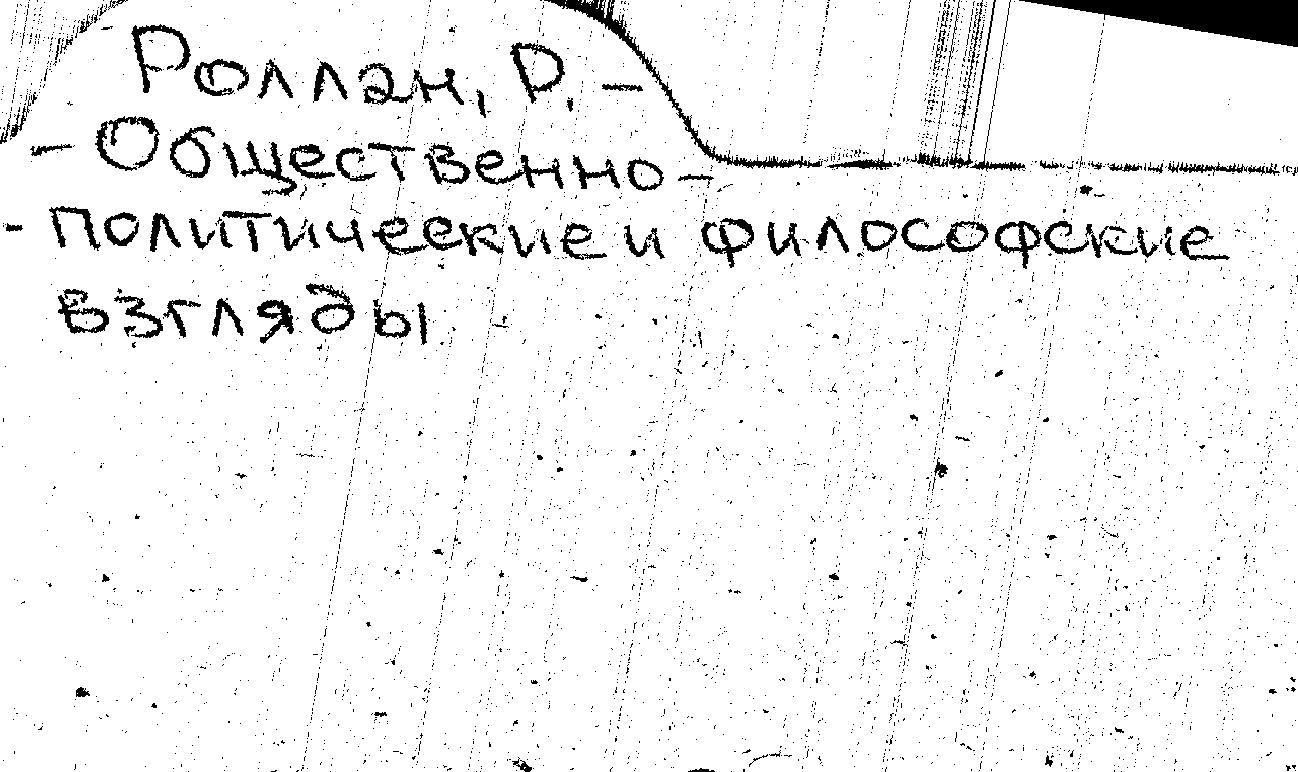 Роллан, Р. –
– Общественно-
- политические и философские
взгляды